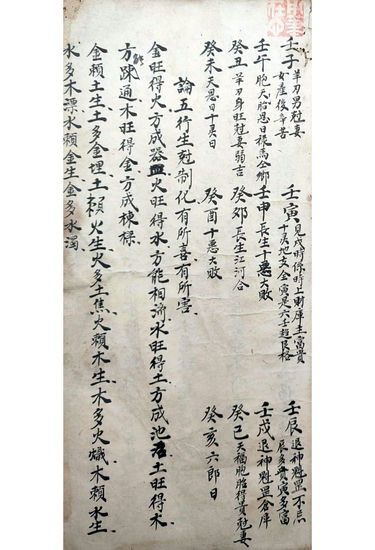 壬子 羊刃男尅妻 女產後辛苦 壬寅 見戌時係時上財庫主富貴 十灵地支全寅是六壬趋艮格 壬辰 退神魁罡不忌 辰多貴寅多富
壬午 胞天胎恩日祿馬公鄉 壬申 長生十悪大敗 壬戌 退神魁罡倉庫
癸丑 羊刃身旺尅妻弱吉 癸卯 長生江河合 癸巳 天福胞胎得貴尅妻
癸未 天恩日十灵日 癸酉 十悪大敗 癸亥 六郎日
論五行生尅制化有所喜有所害
金旺得火方成器皿火旺得水方能相濟水旺得土方成池沼土旺得木
方能疎通木旺得金方成棟樑
金賴土生土多金埋土賴火生火多土焦火賴木生木多火熾木賴水生
水多木漂水賴金生金多水濁